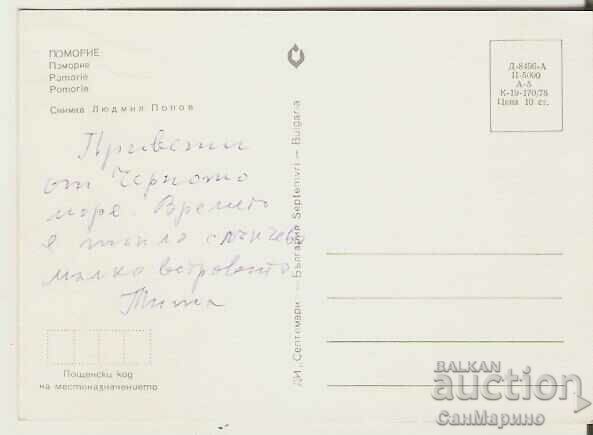 ПОМОРИЕ
Поморие
Pomorie
Pomorie
Снимка Людмил Попов
Привети
от Черното
море. Времето
е топло слънчево
малко ветровито
ДИ „Септември" — България Septemvri — Bulgaria
Д-8456-А
П-5000
А-5
К-19-170/78
Цена 10 ст.
Пощенски код
на местоназначението
BALKAN
auction
СанМарино